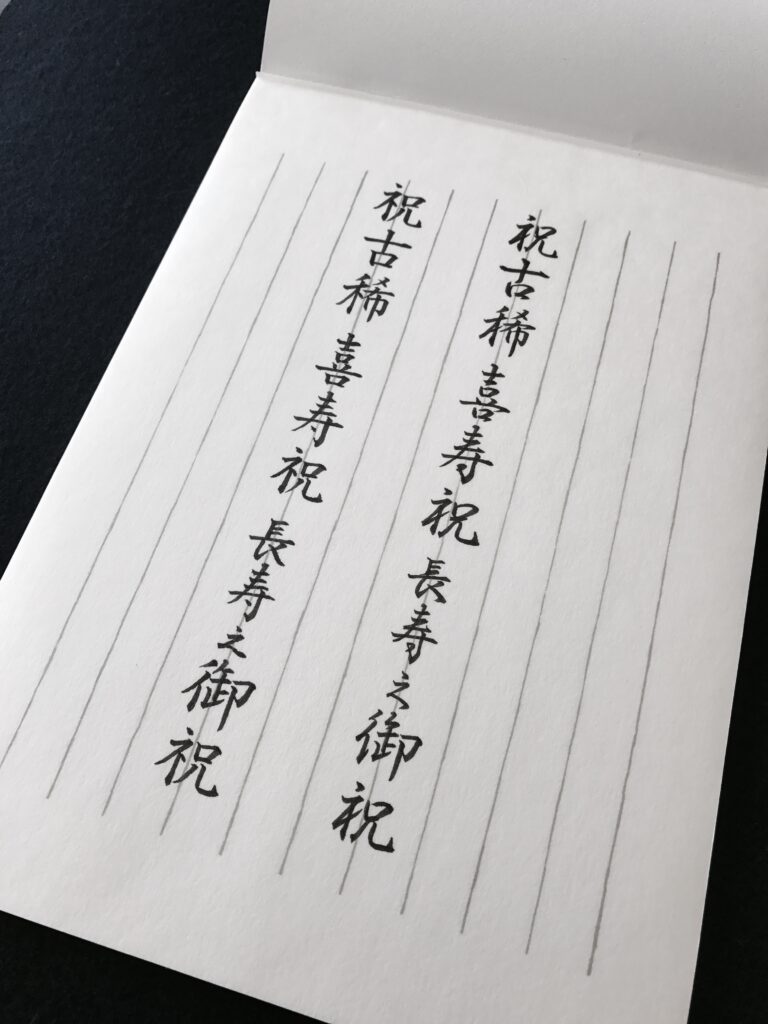 祝古稀 喜寿祝 長寿之御祝
祝古稀 喜寿祝 長寿之御祝